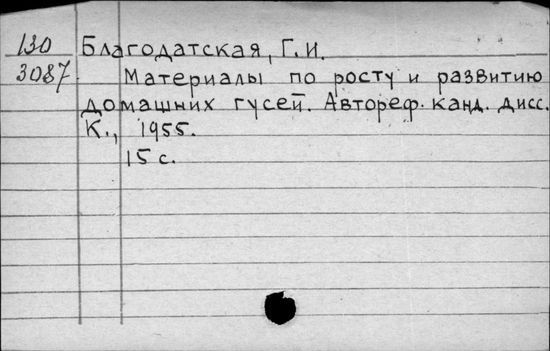 130 Благодатская, Г.И.
3087 Материалы по росту и развитию
домашних гусей. Автореф. канд. дисс.
К., 1955.
15 с.